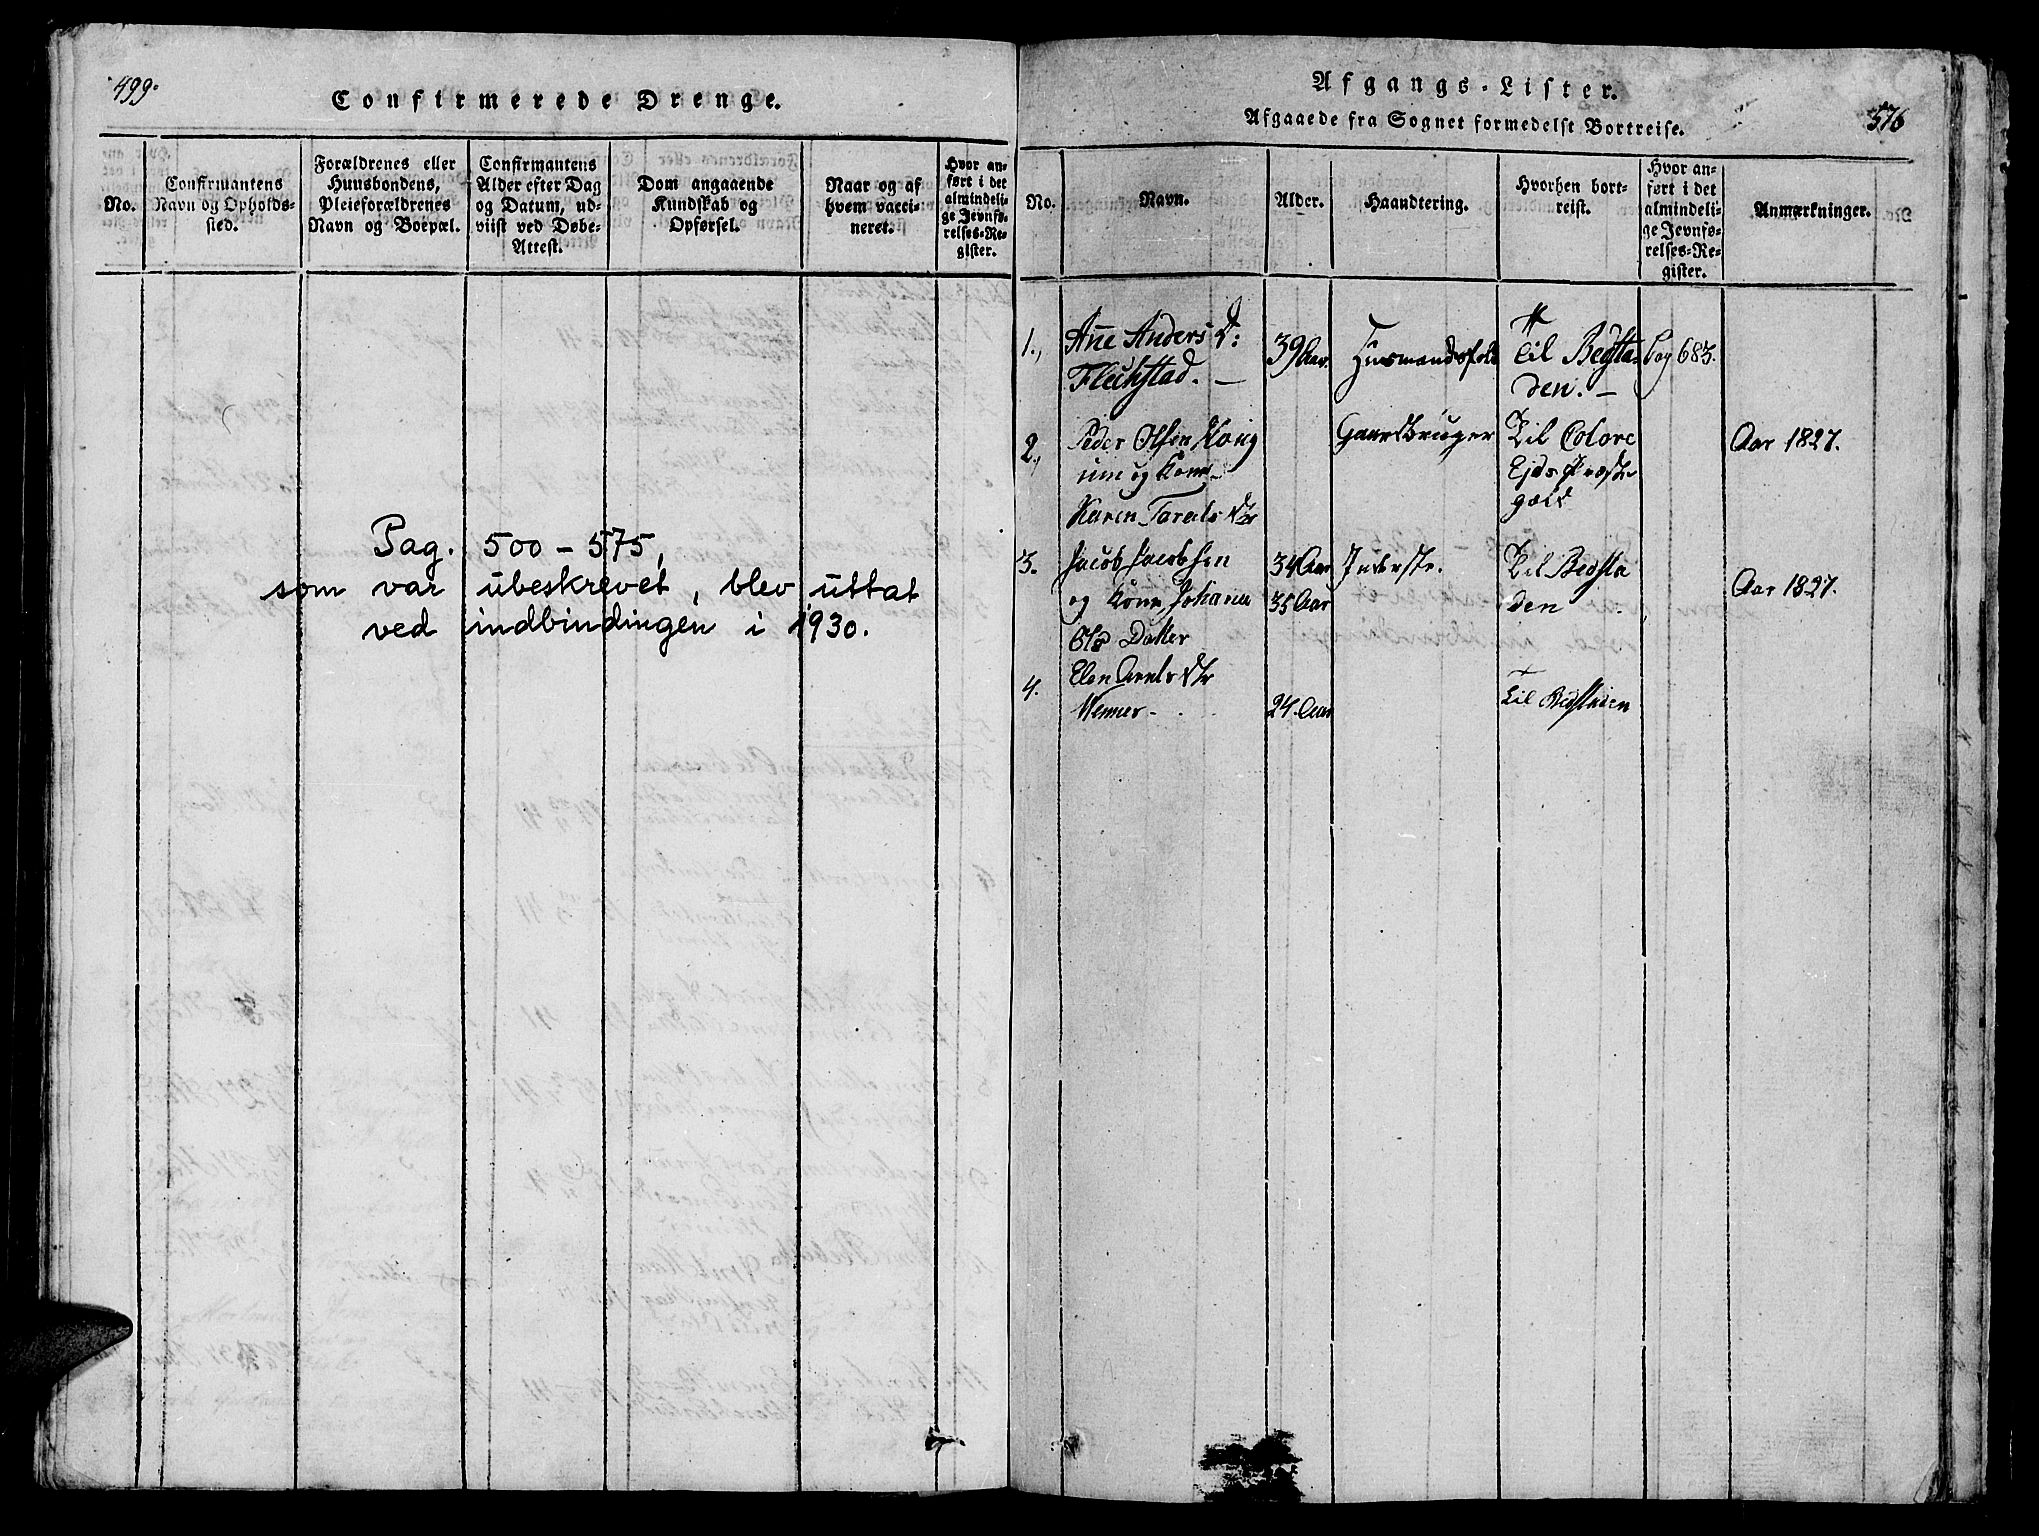 499.
Confirmerede Drenge.
No.
Confirmantens Navn og Opholds-sted.
Forældrenes eller Huusbondens, Pleieforældrenes Navn og Boepæl.
Confirmantens Alder efter Dag og Datum, ud-viist ved Døbe-Attest.
Dom angaaende Kundskab og Opførsel.
Naar og af hvem vacci-neret.
Hvor an-ført i det almindeli-ge Jevnfø-relses-Re-gister.
Pag. 500 - 575,
som var ubeskrevet, blev uttat
ved indbindingen i 1930.
Afgangs-Lister.
Afgaaede fra Sognet formedelst Bortreise.
576
No.
Navn.
Alder.
Haandtering.
Hvorhen bort-reist.
Hvor an-ført i det almindeli-ge Jevnfø-relses-Re-gister.
Anmærkninger.
1., Ane Anders D: 39 Aar. til Begsta Pag 683.
den. -
2., Peder Olsen Gaardbruger Til Aar 1827.
og Kone
Karen
3. Jacob Jacobsen 34 Aar Inderste. Til Begsta Aar 1827.
og Kone Johana 35 Aar den
Ols Datter
4. Elen
24. Aar til